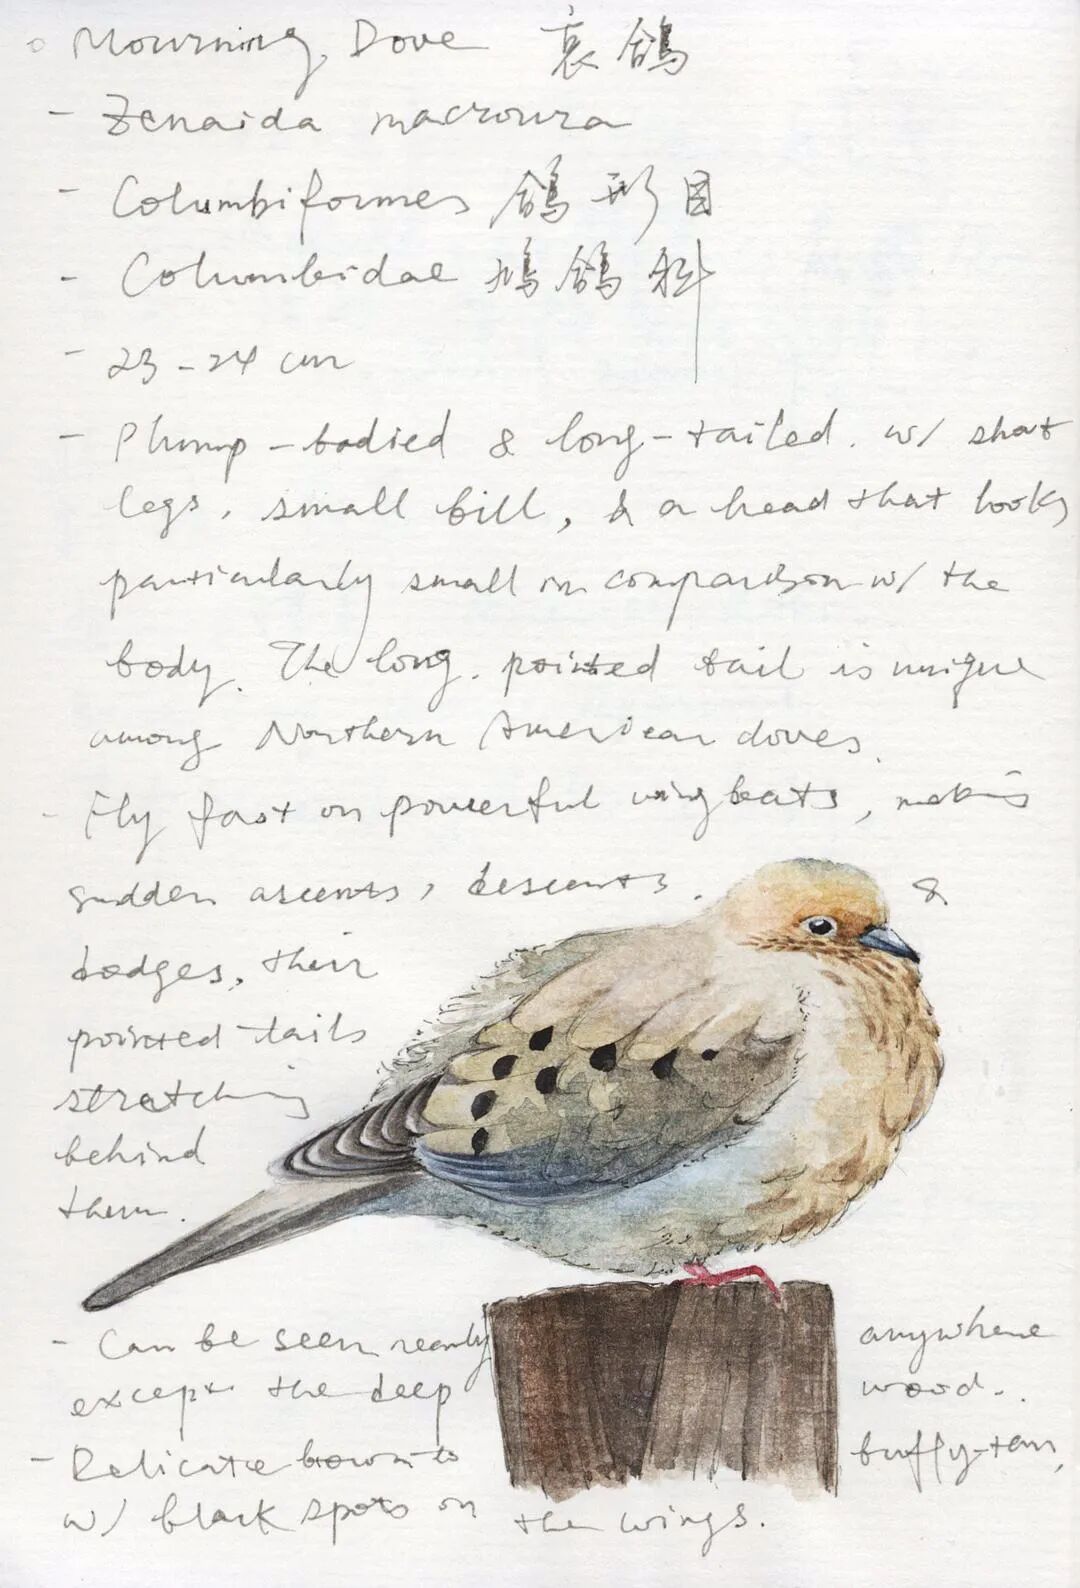 ○ Mourning Dove 哀鴿
- Zenaida macroura
- Columbiformes 鴿形目
- Columbidae 鳩鴿科
- 23-24 cm
- Plump-bodied & long-tailed. w/ short
legs, small bill, & a head that looks
particularly small in comparison w/ the
body. The long, pointed tail is unique
among Northern American doves.
- Fly fast on powerful wingbeats, making
sudden ascents, descents, &
dodges, their
pointed tails
stretching
behind
them.
- Can be seen nearly anywhere
except the deep wood.
- Delicate brown to buffy-tan,
w/ black spots on the wings.